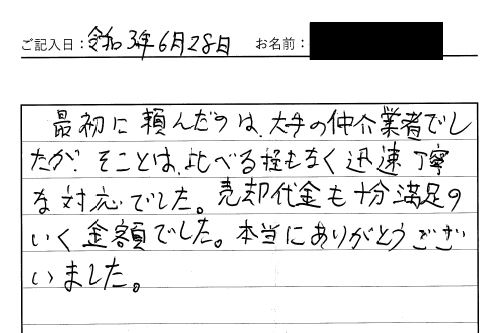 ご記入日：令和3年6月28日 お名前：
最初に頼んだのは、大手の仲介業者でし
たが、そことは、比べる程もなく迅速丁寧
な対応でした。売却代金も十分満足の
いく金額でした。本当にありがとうござ
いました。